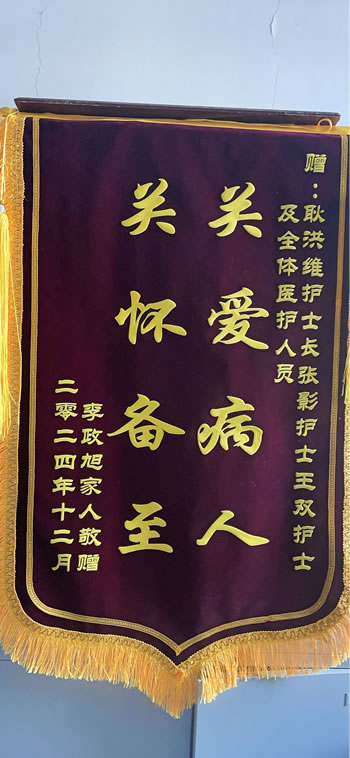 赠：耿洪维护士长张影护士王双护士
及全体医护人员
关爱病人
关怀备至
李政旭家人敬赠
二零二四年十二月